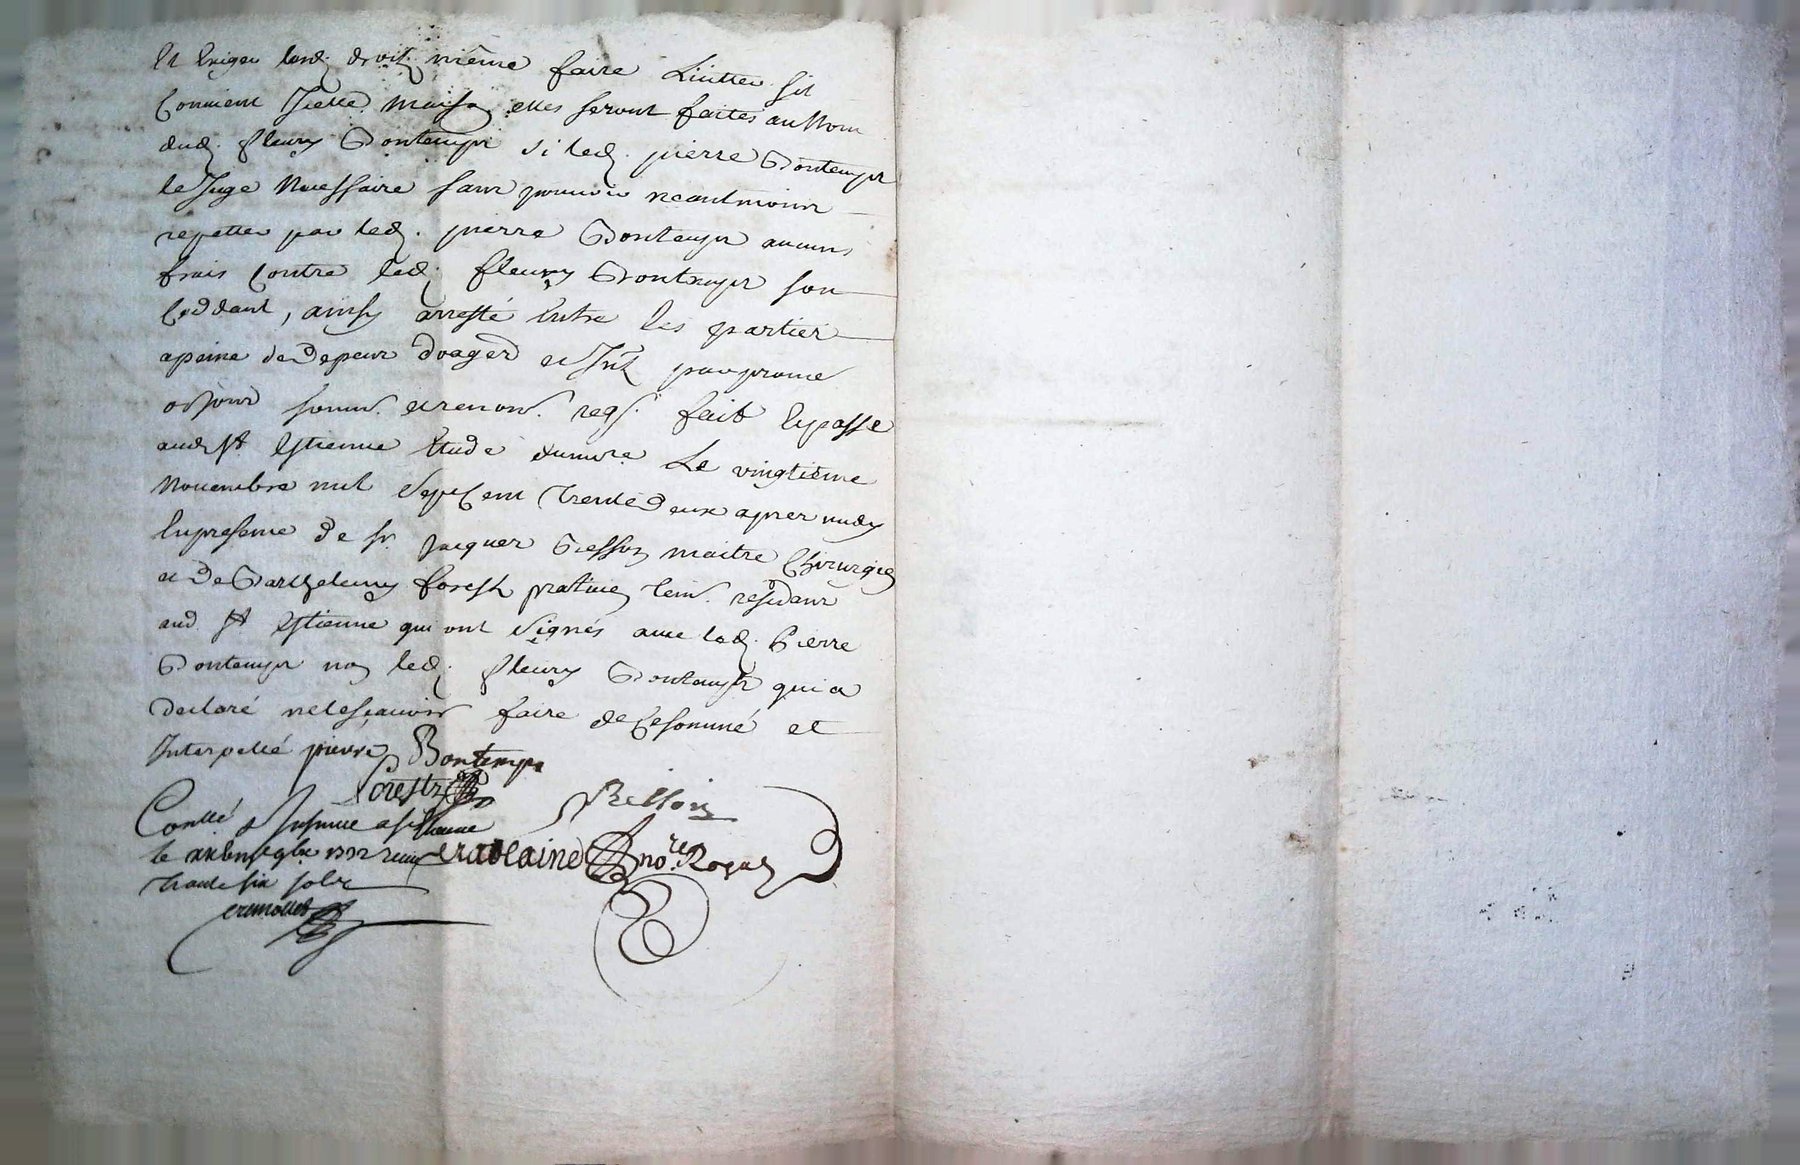 et exiger lesd. droits même faire quitter sil
convient Icelle maison elles seront faites au Nom
dud. fleury Bontemps si led. pierre Bontemps
le Juge Necessaire sans pouvoir neantmoins
repetter par led. pierre Bontemps aucuns
frais contre led. fleury Bontemps son
Ceddant, ainsy arresté entre les parties
apeine de depens domages et Int. par promesse
soum. et renon. req. fait et passé
aud. St Estienne Etude du no.re Le vingtieme
Novembre mil sept cent trente deux apres midy
En presence de sr. Jacques Besson maitre Chirurgien
et de Barthelemy forest praticien tem. residans
aud. St Estienne qui ont signés avec led. Pierre
Bontemps non led. fleury Bontemps qui a
declaré ne le sçavoir faire de ce sommé et
Interpellé pierre Bontemps
forest
Besson
Con.llé & Insinué a St Etienne
le 9bre 1732 no.re Royal
trente six sols